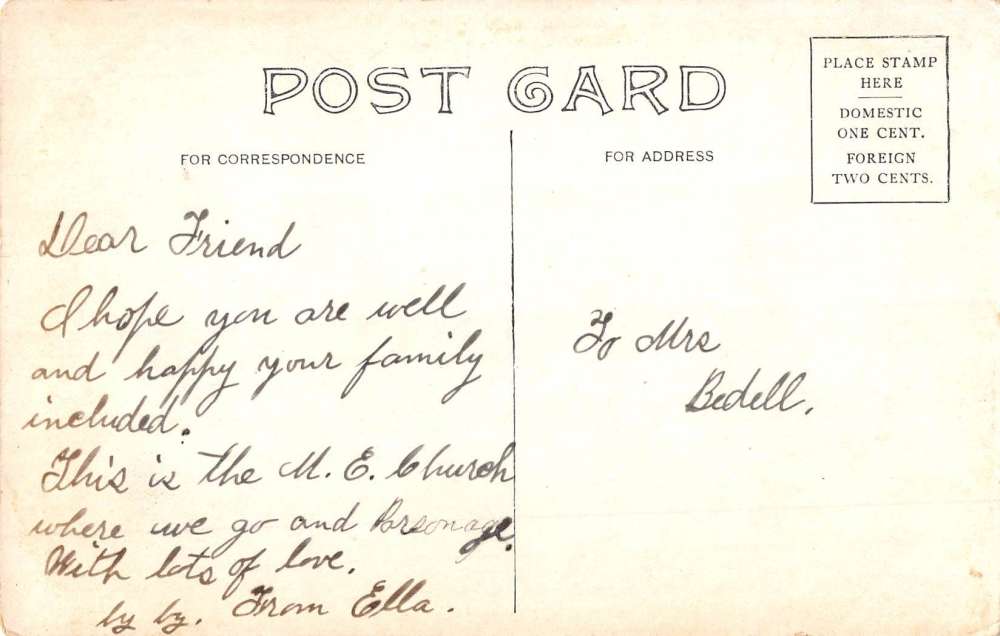 POST CARD
PLACE STAMP
HERE
DOMESTIC
ONE CENT.
FOREIGN
TWO CENTS.
FOR CORRESPONDENCE
FOR ADDRESS
Dear Friend
I hope you are well
and happy your family
included.
This is the M. E. Church
where we go and Parsonage.
With lots of love.
by by. From Ella.
To Mrs
Bedell.